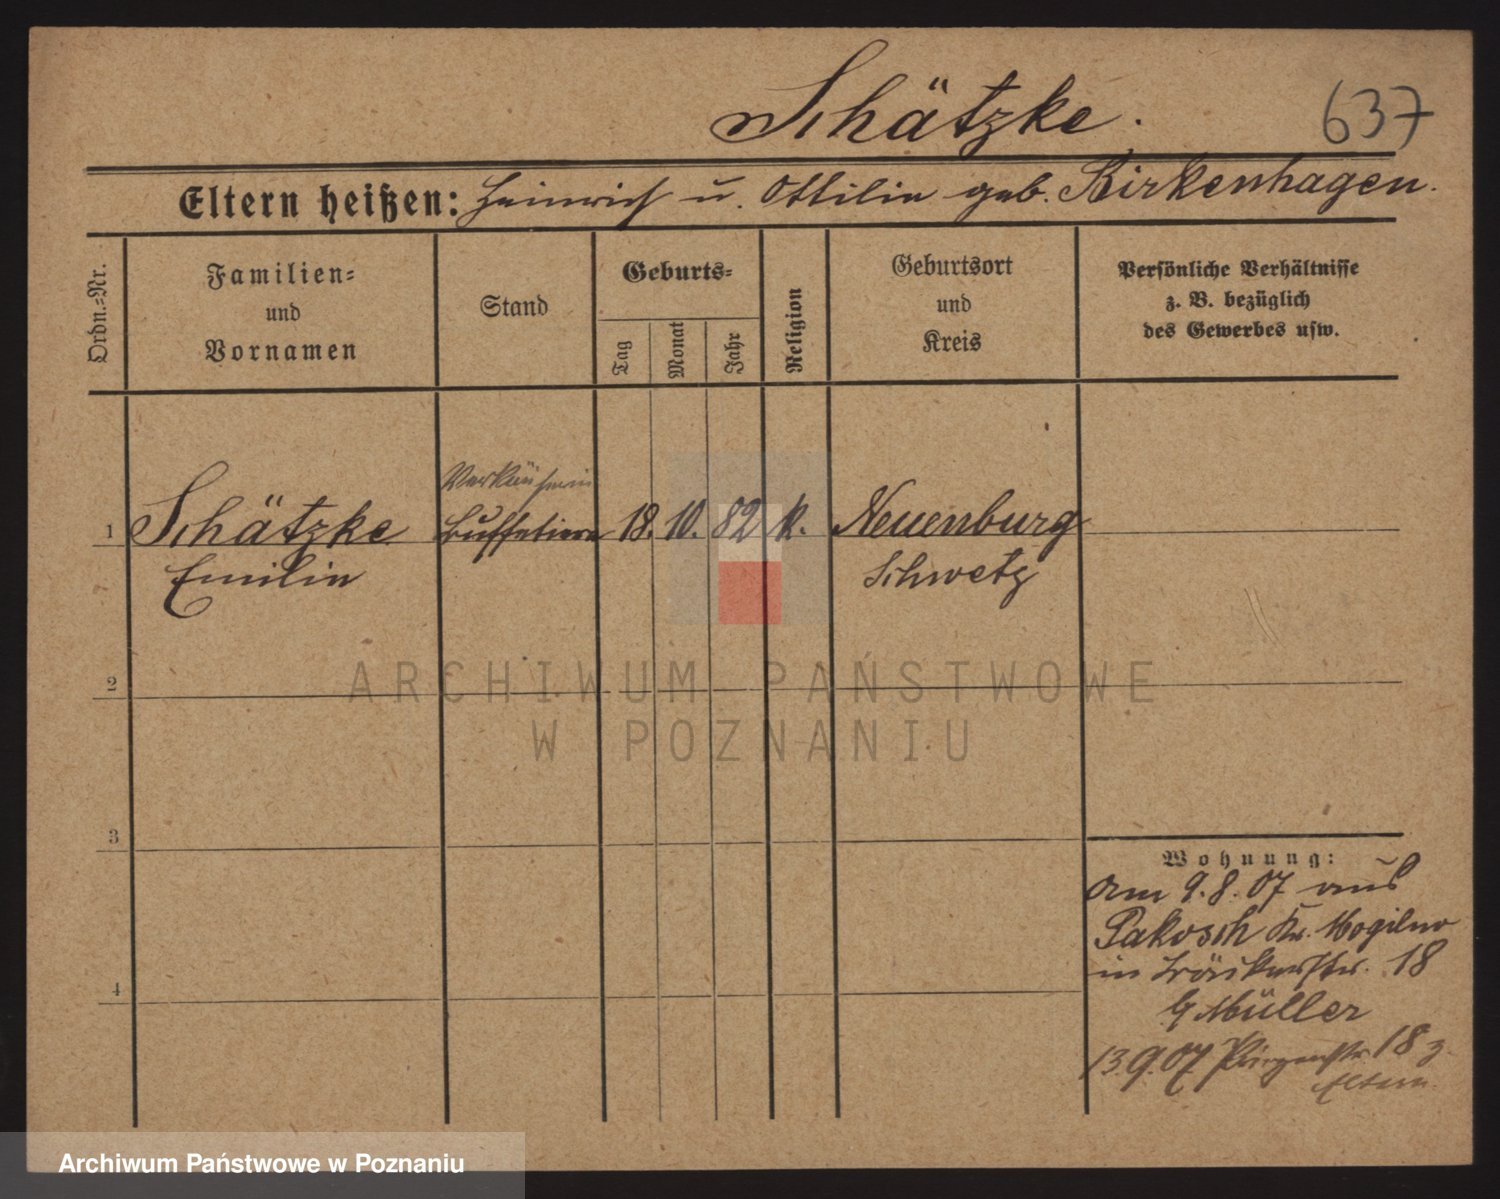 Schätzke.
637
Eltern heißen: Heinrich u. Ottilie geb. Birkenhagen.
Ordn.=Nr.
Familien=
und
Vornamen
Stand
Geburts=
Tag
Monat
Jahr
Religion
Geburtsort
und
Kreis
Persönliche Verhältnisse
z. B. bezüglich
des Gewerbes usw.
Verkäuferin
1 Schätzke Buffetiere 18. 10. 82 k. Neuenburg
Emilie Schwetz
2
ARCHIWUM PAŃSTWOWE
W POZNANIU
3
Wohnung:
Am 9.8.07 aus
Pakosch Kr. Mogilno
in 18
b Müller
4
13.9.07 18 z.
Eltern
Archiwum Państwowe w Poznaniu